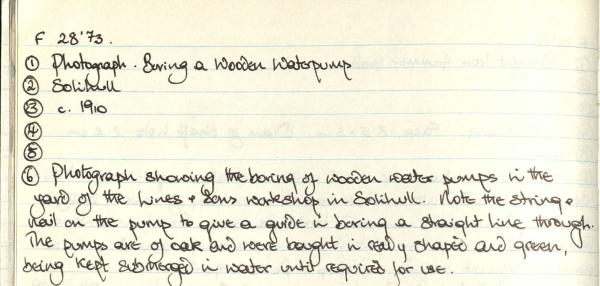 F 28'73.
① Photograph. Boring a Wooden Waterpump
② Solihull
③ c. 1910
④
⑤
⑥ Photograph showing the boring of wooden water pumps in the
yard of the Lines & Sons workshop in Solihull. Note the string &
nail on the pump to give a guide in boring a straight line through.
The pumps are of oak and were bought in ready shaped and green,
being kept submerged in water until required for use.